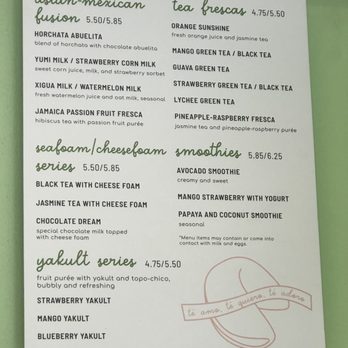 asian-mexican
fusion 5.50/5.85
HORCHATA ABUELITA
blend of horchata with chocolate abuelita
YUMI MILK / STRAWBERRY CORN MILK
sweet corn juice, milk, and strawberry sorbet
XIGUA MILK / WATERMELON MILK
fresh watermelon juice and oat milk, seasonal
JAMAICA PASSION FRUIT FRESCA
hibiscus tea with passion fruit purée
seafoam/cheesefoam
series 5.50/5.85
BLACK TEA WITH CHEESE FOAM
JASMINE TEA WITH CHEESE FOAM
CHOCOLATE DREAM
special chocolate milk topped
with cheese foam
yakult series 4.75/5.50
fruit purée with yakult and topo-chico,
bubbly and refreshing
STRAWBERRY YAKULT
MANGO YAKULT
BLUEBERRY YAKULT
tea frescas 4.75/5.50
ORANGE SUNSHINE
fresh orange juice and jasmine tea
MANGO GREEN TEA / BLACK TEA
GUAVA GREEN TEA
STRAWBERRY GREEN TEA / BLACK TEA
LYCHEE GREEN TEA
PINEAPPLE-RASPBERRY FRESCA
jasmine tea and pineapple-raspberry purée
smoothies 5.85/6.25
AVOCADO SMOOTHIE
creamy and sweet
MANGO STRAWBERRY WITH YOGURT
PAPAYA AND COCONUT SMOOTHIE
seasonal
*Menu items may contain or come into
contact with milk and eggs.
té amo, té quiero, té adoro